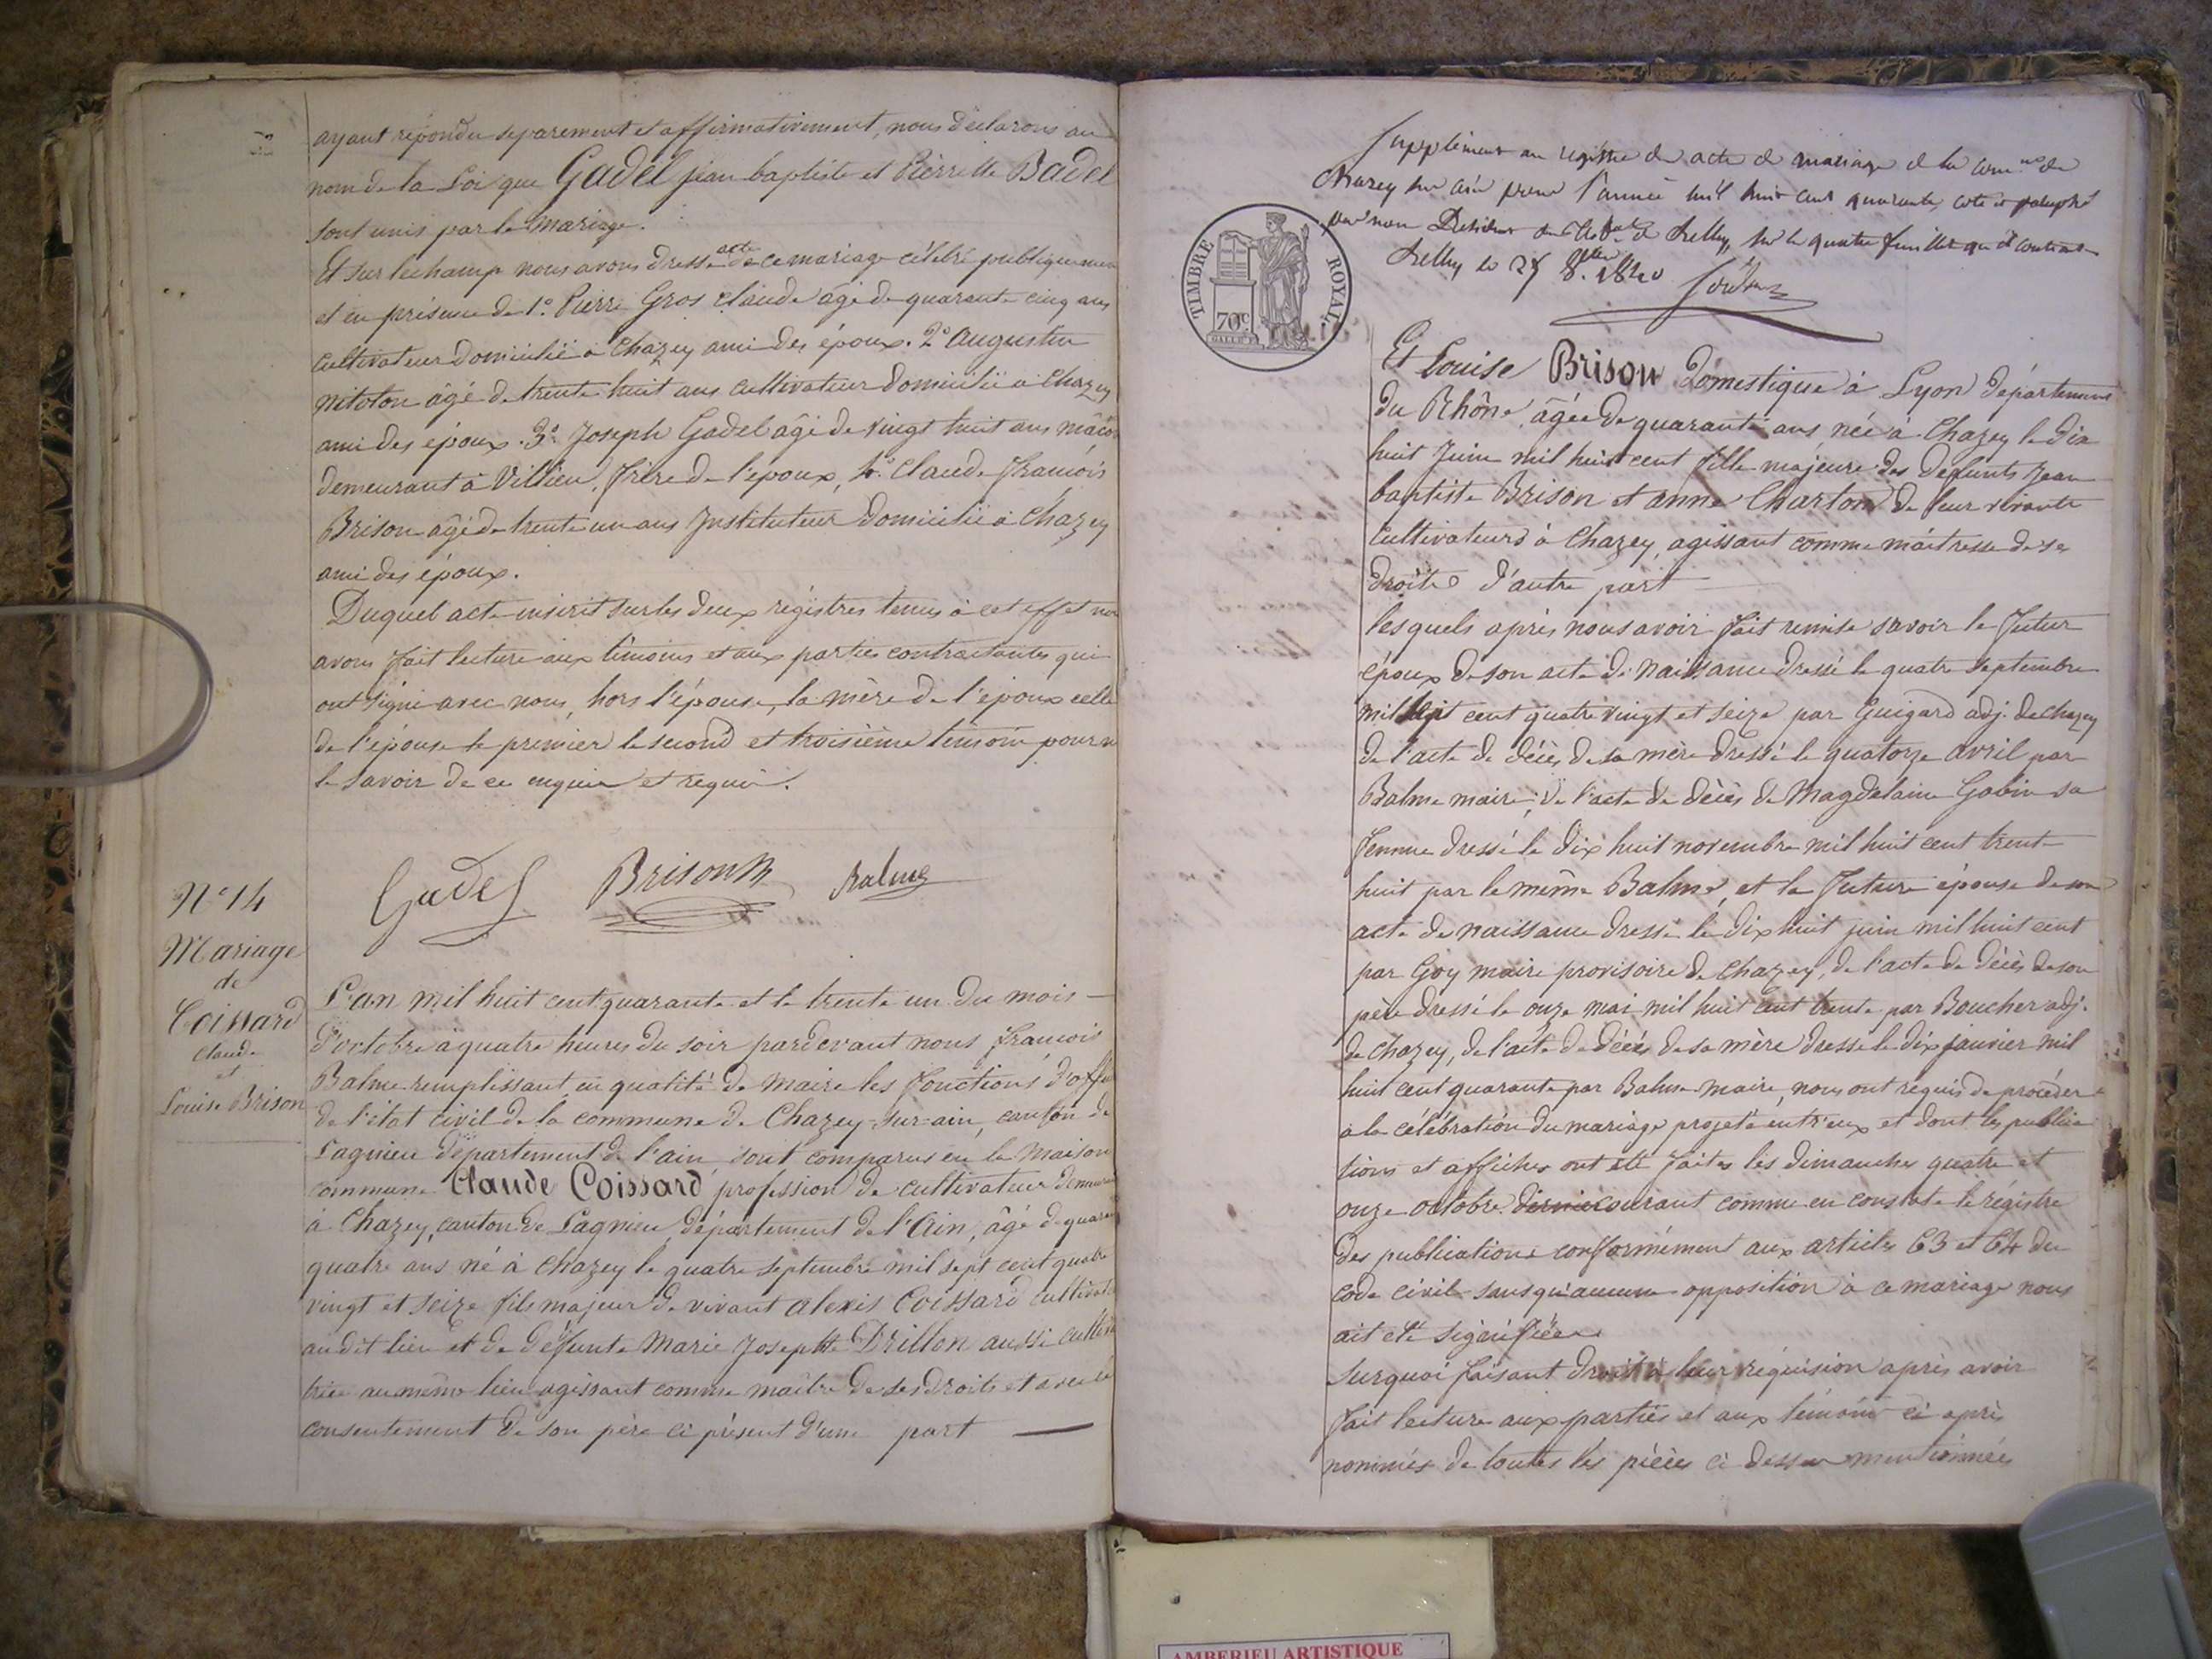 ayant répondu séparement et affirmativement, nous déclarons au
nom de la Loi que Gadel jean baptiste et Pierrette Badel
sont unis par le mariage.
Et sur le champ nous avons dressé acte de ce mariage célébré publiquement
et en présence de 1.° Pierre Gros claude agé de quarante cinq ans
cultivateur domicilié à Chazey ami des époux. 2° augustin
nitoton âgé de trente huit ans cultivateur domicilié à Chazey
ami des époux. 3° Joseph Gadel âgé de vingt huit ans maçon
demeurant à Villieu, frère de l'époux, 4.° Claude François
Brison agé de trente un ans Instituteur domicilié à Chazey
ami des époux.
Duquel acte inscrit sur les deux régistres tenus à cet effet nous
avons fait lecture aux témoins et aux parties contractantes qui
ont signé avec nous, hors l'épouse, la mère de l'époux celle
de l'épouse le premier le second et troisième temoin pour ne
le savoir de ce enquis et requis.
Gadel Brison Balme
N° 14
Mariage
de
Coissard
Claude
et
Louise Brison
L'an mil huit cent quarante et le trente un du mois
d'octobre à quatre heures du soir pardevant nous François
Balme remplissant en qualité de maire les fonctions d'officier
de l'état civil de la commune de Chazey-sur-ain, canton de
Lagnieu département de l'ain, sont comparus en la maison
commune Claude Coissard profession de cultivateur demeurant
à Chazey, canton de Lagnieu, département de l'Ain, âgé de quarante
quatre ans né à Chazey le quatre septembre mil sept cent quatre
vingt et seize fils majeur de vivant alexis Coissard cultivateur
au dit lieu et de défunte Marie Josephte Drillon aussi cultiva
trice au même lieu agissant comme maître de ses droits et avec le
consentement de son père ci présent d'une part
Supplément au registre des actes de mariage de la com.ne de
Chazey sur ain pour l'année mil huit cent quarante, coté et paraphé
par nous Président du Trib.al de Belley, sur les quatre feuillets qu'il contient
Belley le 27 8.bre 1840
TIMBRE ROYAL.
70c
Et Louise Brison domestique à Lyon département
du Rhône, âgée de quarante ans, née à Chazey le dix
huit Juin mil huit cent fille majeure des défunts Jean
baptiste Brison et anne Charton de leur vivant
Cultivateurs à Chazey, agissant comme maîtresse de ses
droits d'autre part
lesquels après nous avoir fait remise savoir le futur
époux de son acte de naissance dressé le quatre septembre
mil sept cent quatre vingt et seize par Guigard adj. de Chazey
de l'acte de décès de sa mère dressé le quatorze avril par
Balme maire; de l'acte de décès de Magdelaine Gobin sa
femme dressé le dix huit novembre mil huit cent trente
huit par le même Balme, et la future épouse de son
acte de naissance dressé le dix huit juin mil huit cent
par Goy maire provisoire de Chazey, de l'acte de décès de son
père dressé le onze mai mil huit cent trente par Boucher adj.
de Chazey, de l'acte de décès de sa mère dressé le dix janvier mil
huit cent quarante par Balme maire, nous ont requis de procéder
à la célébration du mariage projeté entr'eux et dont les publica
tions et affiches ont été faites les dimanches quatre et
onze octobre dernier courant comme en constate le régistre
des publications conformément aux articles 63 et 64 du
code civil sans qu'aucune opposition à ce mariage nous
ait été signifiée.
Surquoi faisant droit à leur réquision après avoir
fait lecture aux parties et aux témoins ci après
nommés de toutes les pièces ci dessus mentionnées
AMBERIEU ARTISTIQUE